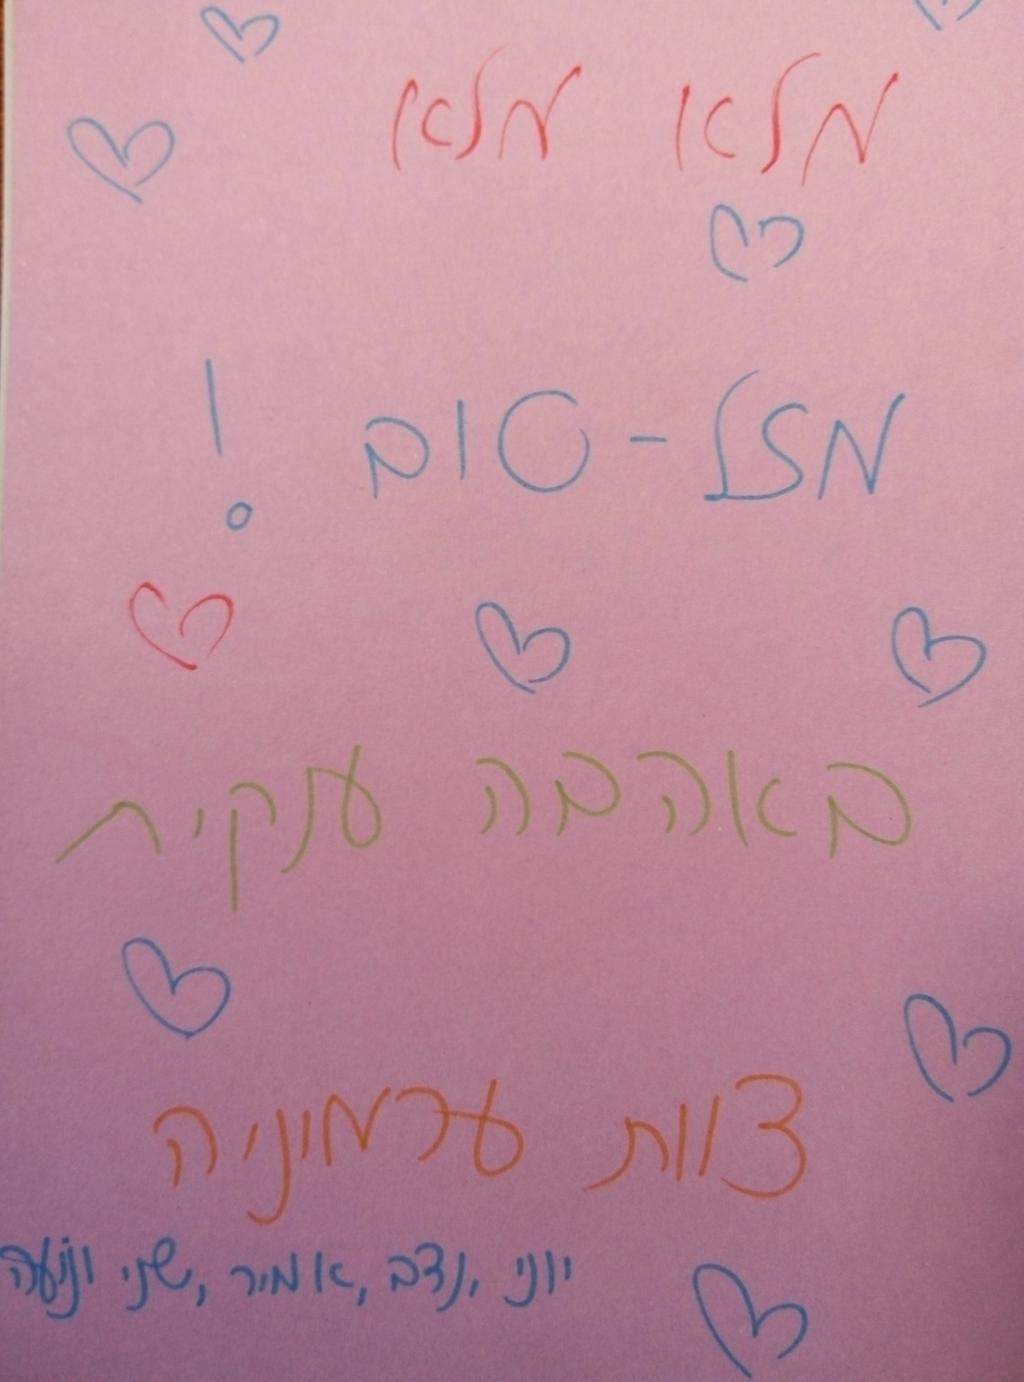 מלא מלא
מזל-טוב!
באהבה ענקית
צוות ערמוניה
יוני, נדב, אמיר, שני ונועה